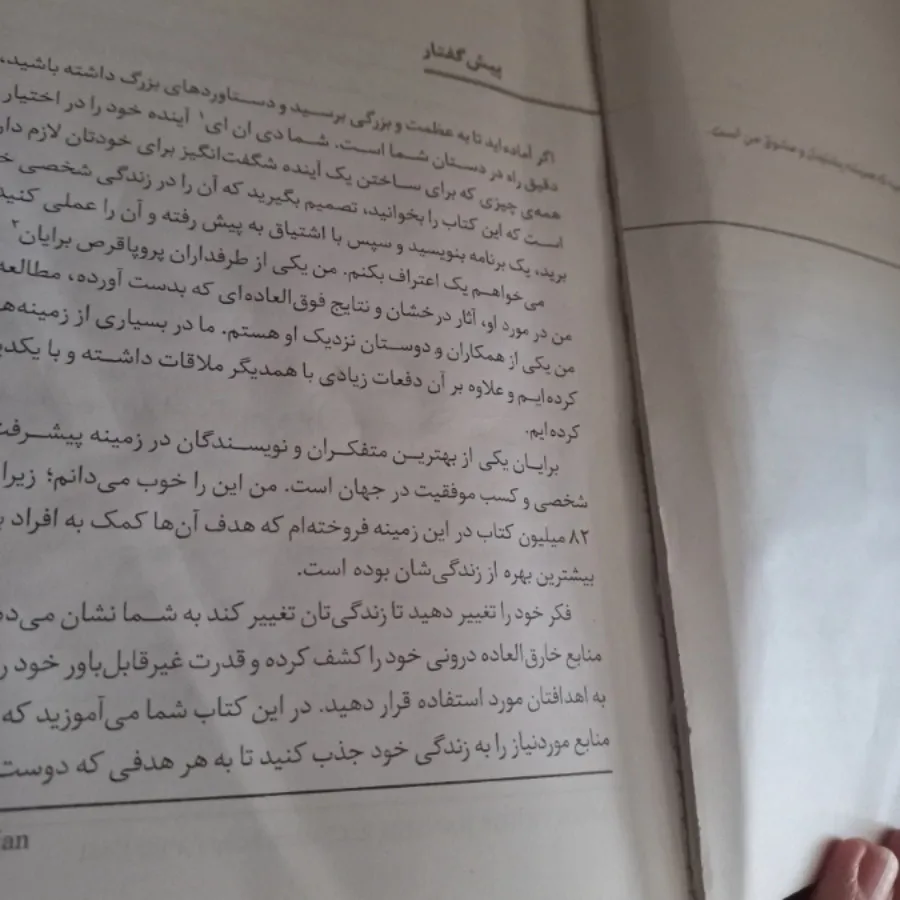 پیش‌گفتار
اگر آماده‌اید تا به عظمت و بزرگی برسید و دستاوردهای بزرگ داشته باشید،
دقیق راه در دستان شما است. شما دی ان ای۱ آینده خود را در اختیار
همه‌ی چیزی که برای ساختن یک آینده شگفت‌انگیز برای خودتان لازم دار
است که این کتاب را بخوانید، تصمیم بگیرید که آن را در زندگی شخصی خ
برید، یک برنامه بنویسید و سپس با اشتیاق به پیش رفته و آن را عملی کنید
می‌خواهم یک اعتراف بکنم. من یکی از طرفداران پروپاقرص برایان۲
من در مورد او، آثار درخشان و نتایج فوق‌العاده‌ای که بدست آورده، مطالعه
من یکی از همکاران و دوستان نزدیک او هستم. ما در بسیاری از زمینه‌ه
کرده‌ایم و علاوه بر آن دفعات زیادی با همدیگر ملاقات داشته و با یکدی
کرده‌ایم.
برایان یکی از بهترین متفکران و نویسندگان در زمینه پیشرفت
شخصی و کسب موفقیت در جهان است. من این را خوب می‌دانم؛ زیرا
۸۲ میلیون کتاب در این زمینه فروخته‌ام که هدف آن‌ها کمک به افراد ب
بیشترین بهره از زندگی‌شان بوده است.
فکر خود را تغییر دهید تا زندگی‌تان تغییر کند به شما نشان می‌ده
منابع خارق‌العاده درونی خود را کشف کرده و قدرت غیرقابل‌باور خود ر
به اهدافتان مورد استفاده قرار دهید. در این کتاب شما می‌آموزید که
منابع موردنیاز را به زندگی خود جذب کنید تا به هر هدفی که دوست
ian
و مشوق من است.